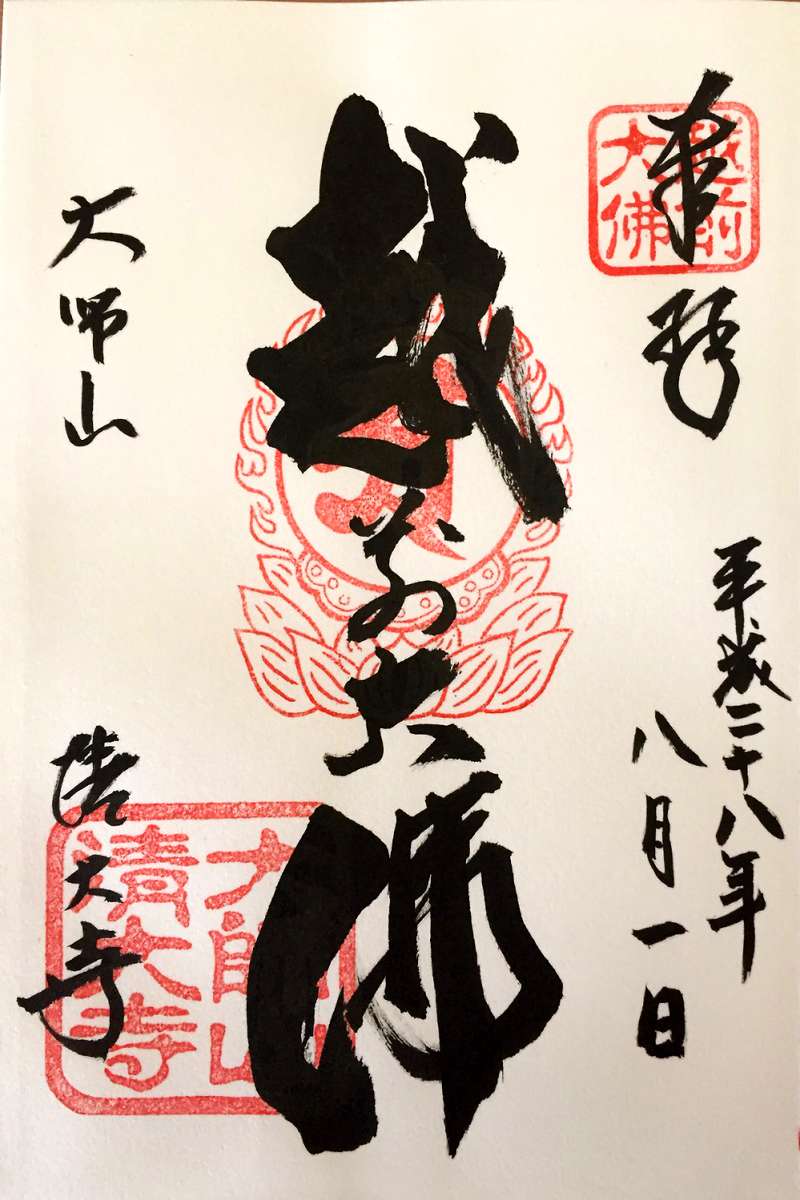 奉拝
越前
大佛
平成二十八年
八月一日
越前大佛
大師山
清大寺
大師山
清大寺